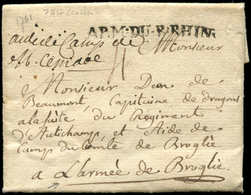 ARM·DU·B·RHIN·
Monsieur
Monsieur De
Beaumont Capitaine de dragons
a la suite du Regiment
d'Autichamp et Aide de
Camp du Comte de Broglie
a L'armée de Broglie